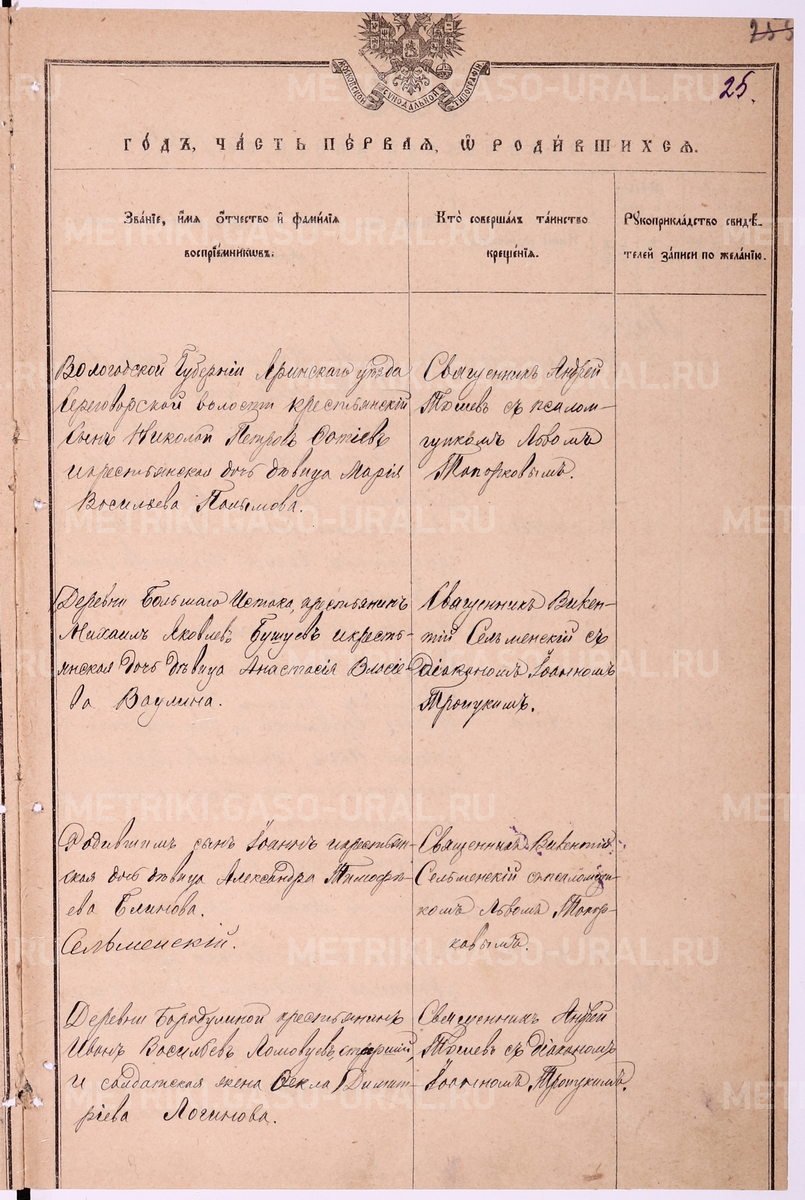 255
25.
МОСКОВСКОЙ СѴНОДАЛЬНОЙ ТИПОГРАФІИ
ГО́ДЪ, ЧА́СТЬ ПЕ́РВАѦ, Ѡ҆ РОДИ́ВШИХСѦ.
Зва́нїе, и҆́мѧ ѻ҆́тчество и҆ фами́лїѧ
воспрїе́мникѡвъ.
Кто̀ соверша́лъ та́инство
креще́нїѧ.
Рꙋкоприкла́дство свидѣ́-
телей за́писи по жела́нїю.
Вологодской Губерніи Яринскаго уѣзда
Серговорской волости крестьянскій
сынъ Николай Петровъ
и крестьянская дочь дѣвица Марія
Васильева
Священникъ Андрей
съ псалом-
щикомъ Львомъ
Топорковымъ.
Деревни Большаго Истока, крестьянинъ
Михаилъ Яковлевъ Бушуевъ и кресть-
янская дочь дѣвица Анастасія Власіе-
ва Ваулина.
Священникъ Викен-
тій Сельменскій съ
діакономъ Іоанномъ
Троицкимъ.
Родившимъ сынъ Іоаннъ и крестьян-
ская дочь дѣвица Александра Тимофѣ-
ева Блинова.
Сельменскій.
Священникъ Викентій
Сельменскій съ псаломщи-
комъ Львомъ Топор-
ковымъ.
Деревни Бородулиной крестьянинъ
Иванъ Васильевъ Ломовцевъ, старшій,
и солдатская жена Ѳекла Димит-
ріева Логинова.
Священникъ Андрей
съ діакономъ
Іоанномъ Троицкимъ.
METRIKI.GASO-URAL.RU